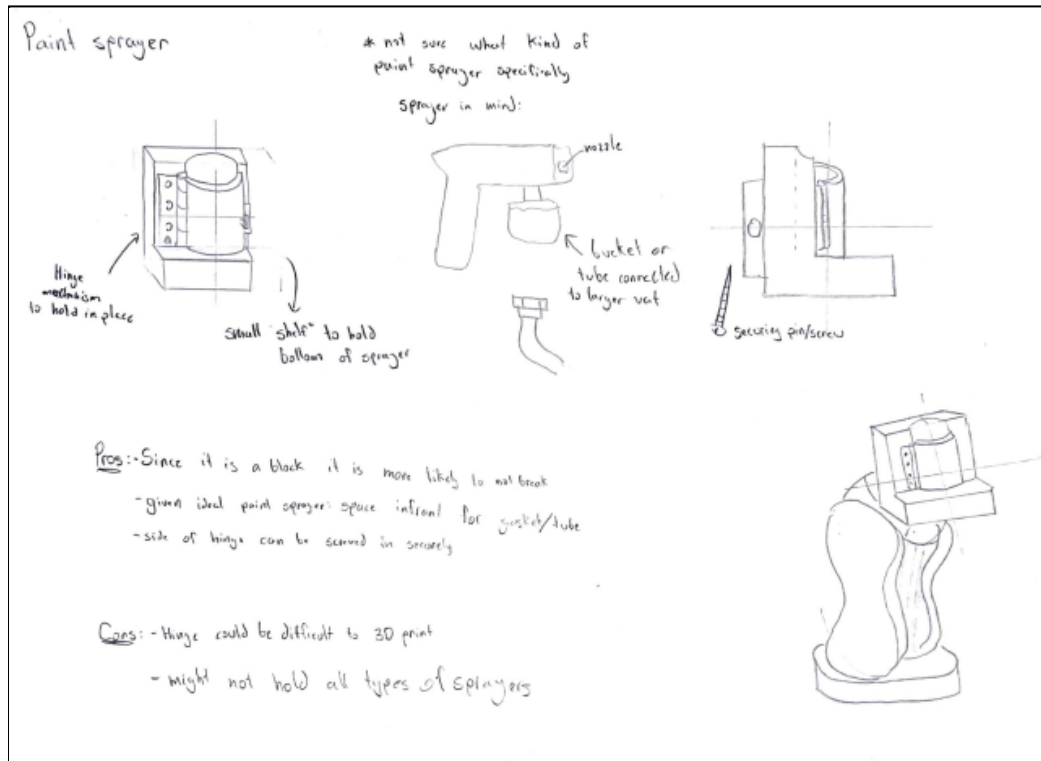 Paint sprayer
* not sure what kind of
paint sprayer specifically
sprayer in mind:
nozzle
Hinge
mechanism
to hold in place
small "shelf" to hold
bottom of sprayer
bucket or
tube connected
to larger vat
securing pin/screw
Pros: - Since it is a block it is more likely to not break
- given ideal paint sprayer: space infront for gasket/tube
- side of hinge can be screwed in securely
Cons: - Hinge could be difficult to 3D print
- might not hold all types of sprayers